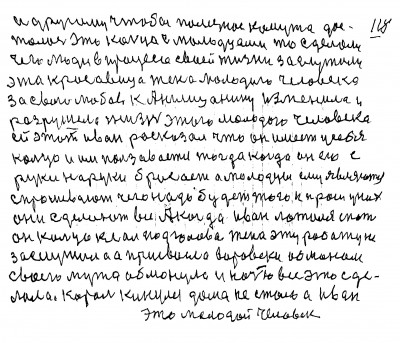 и другому чтобы полезное кому та дос- 118
талось это кольца с молодцами то сделали
чего люди в процесе своей жизни заслужили
эта красавица жена молодого человека
за свою любовь к Англицанину изменила и
разрушила жизнь этого молодого человека
ей этот иван расказал что он имеет у себя
кольцо и им ползавается тогда когда он его с
руки на руки бросает а молодцы ему являются
спрашивают чего надо будет тогда к просил у них
они сделают все А когда иван ложился спать
он кольцо клал под голова жена эту работу не
заслужила а привыкла воровски обманом
своего мужа обманула и ночью все это сде-
лала. Король кинулся дома не стало а иван
это молодой человек